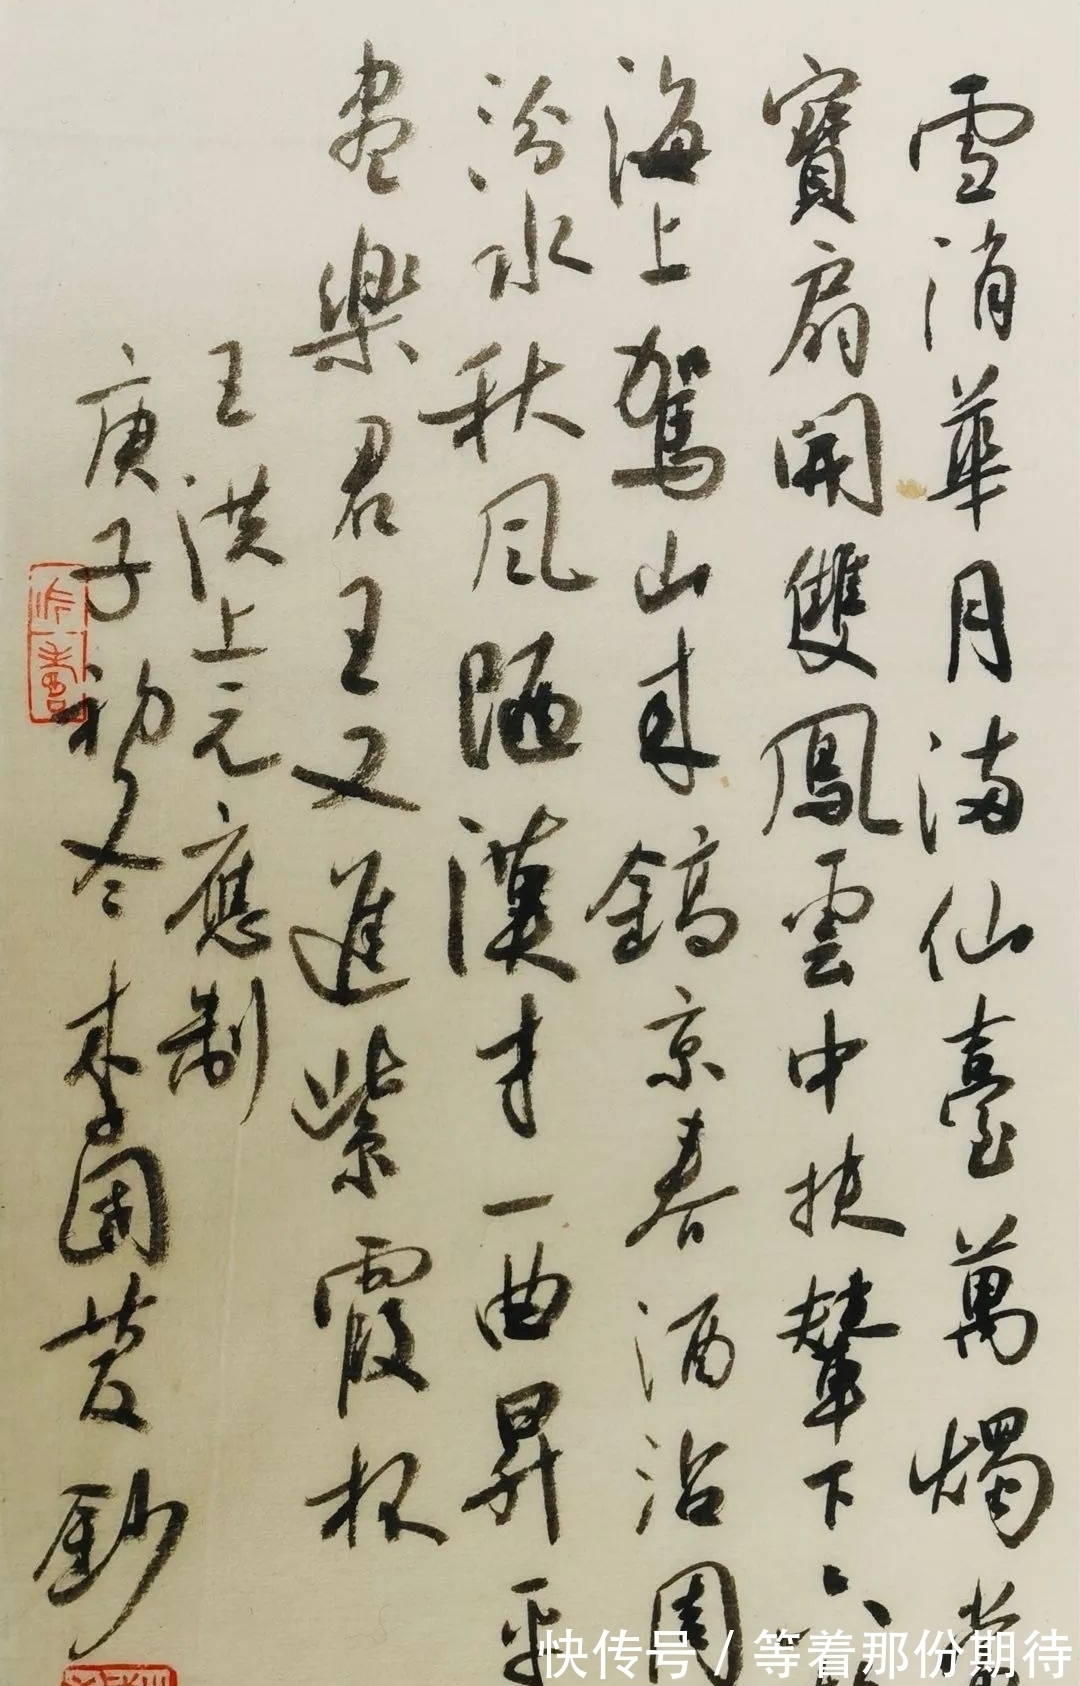 雪消華月滿仙臺萬燭當
寶扇開雙鳳雲中扶輦下六
海上駕山來鎬京春酒沾周
汾水秋風陋漢才一曲昇平
盡樂君王又進紫霞杯
王淇上元應制
庚子初冬李國鈔
快传号 / 等着那份期待